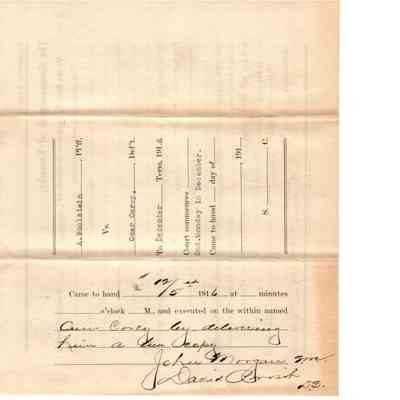 A. Bonlstein Pl'ff.
Vs.
Omar Corey, Def't.
To December Term, 1916
Court commences
2nd.Monday in December.
Came to hand day of
191
S. C.
Came to hand 12/5 1916 at minutes
o'clock M., and executed on the within named
Corey by delivering
him a true copy
John Morgan
David